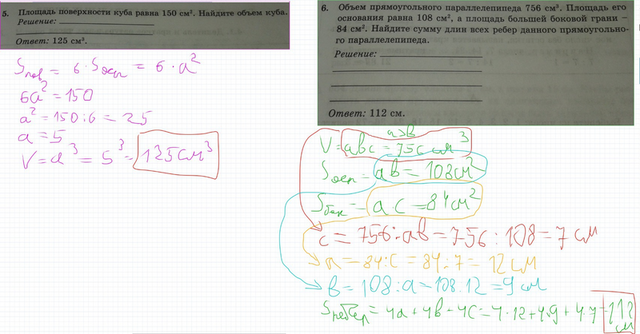 5. Площадь поверхности куба равна 150 см². Найдите объем куба.
Решение:
Ответ: 125 см³.
Sпов = 6·Sосн = 6·a²
6a² = 150
a² = 150:6 = 25
a = 5
V = a³ = 5³ = 125 см³
6. Объем прямоугольного параллелепипеда 756 см³. Площадь его
основания равна 108 см², а площадь большей боковой грани –
84 см². Найдите сумму длин всех ребер данного прямоугольно-
го параллелепипеда.
Решение:
Ответ: 112 см.
a>b
V = abc = 756 см³
Sосн = ab = 108 см²
Sбок = ac = 84 см²
c = 756:ab = 756:108 = 7 см
a = 84:c = 84:7 = 12 см
b = 108:a = 108:12 = 9 см
= 4a+4b+4c = 4·12+4·9+4·7 = 112 см